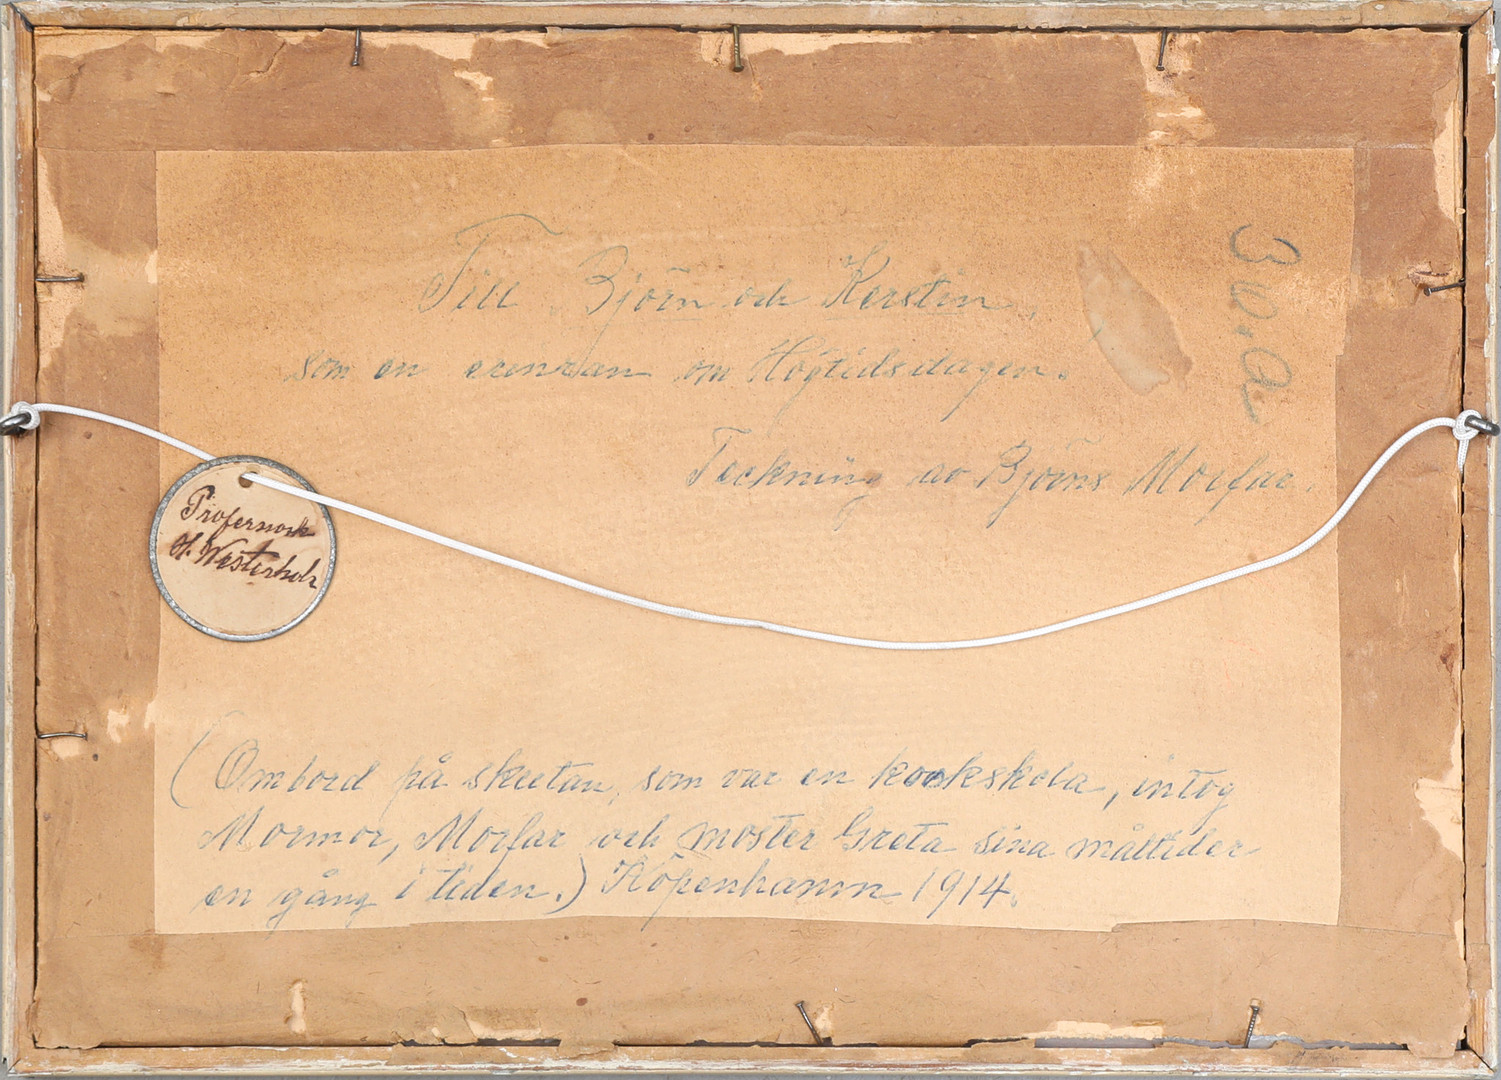 Till Björn och Kerstin,
som en erinran om Högtidsdagen.
Teckning av Björns Morfar.
H. Westerholz
(Ombord på skutan, som var en kockskola, intog
Mormor, Morfar och moster Greta sina måltider
en gång i tiden.) Köpenhamn 1914.